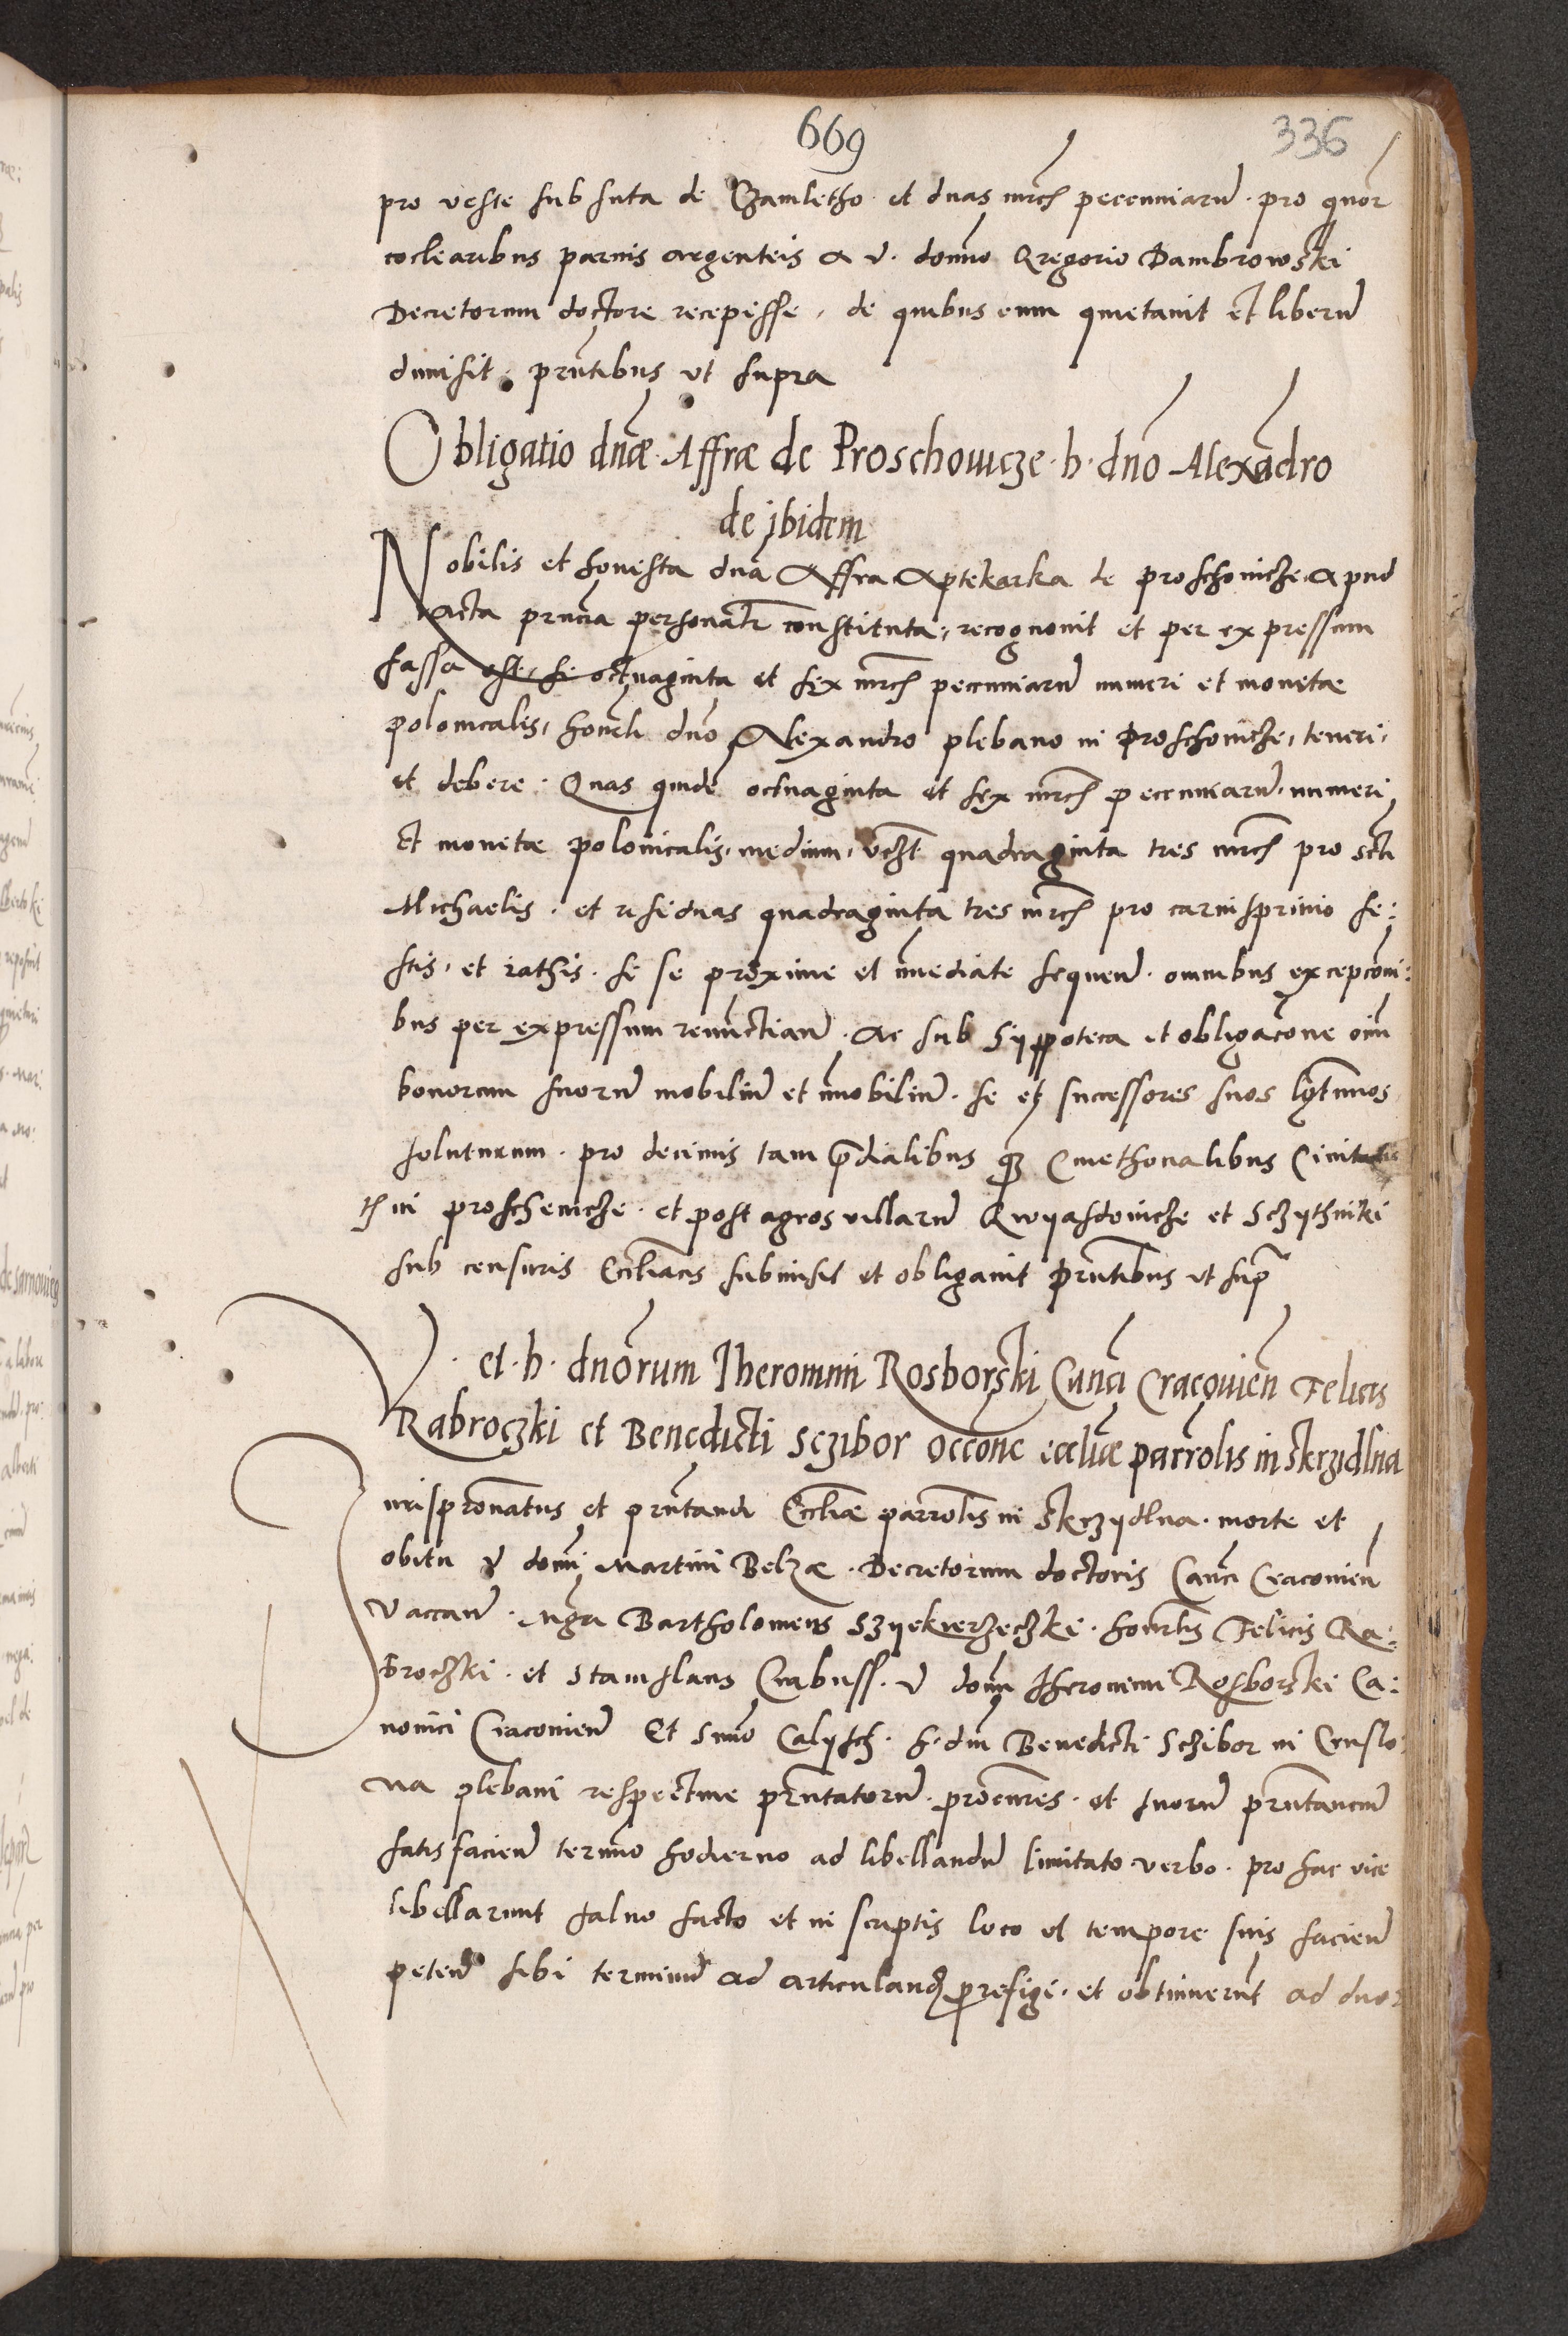 669
336
pro veste sub suta de Czamletho et duas mrc̃ pecc̃uniarũ · pro quor̃
coclearibus parvis argenteis a v. domino Gregorio Dambrowski
Decretorum doctore recepisse, de quibus eum quietavit et liberũ
dimisit. prñtibus ut supra
Obligatio dnæ Affræ de Proschowicze · h · dño Alexãdro
de jbidem
Nobilis et honesta dña Affra Aptekarka de proschoviche apud
acta prñcia personalr̃ constituta, recognovit et per expressum
fassa est, se octuaginta et sex mrc̃ peccuniarũ numeri et monetæ
polonicalis, honrli dño Alexandro plebano in Proschoviche, teneri,
et debere. Quas quidẽ octuaginta et sex mrc̃ peccuniarũ numeri
et monetæ polonicalis, mediam, vcz̃t quadraginta tres mrc̃ pro scti
Michaelis · et residuas quadraginta tres mrc̃ pro carnisprivio fe:
stis, et rathis · se se proxime et ĩmediate sequenᵭ · omnibus excepcõni:
bus per expressum renũctianᵭ · ac sub Hyppoteca et obligacõne oĩm
bonorum suorũ mobiliũ et ĩmobiliũ · se et successores suos lg̃timos
soluturum · pro decimis tam p̃dialibus q̃ Cmethonalibus Civitatis
in proscheviche · et post agros villarũ Gwyasdoviche et Sczythniki
sub censuris Eccliacis submisit et obligavit Prñtibus ut sup̃
V · et · h · dnõrum Jheronimi Rosborski Canci Cracovieñ Felicis
Rabroczki et Benedicti Sczibor occõne eccliæ parrolis in Skrzidlna
Jurispronatus et prñtandi Eccliæ parrolis in Skrzydlna · morte et
obitu v domi Martini Belzæ · Decretorum doctoris Canci Cracovieñ
vaccanᵭ · Mgri Bartholomeus Szyekierzechki · honrlis Felicis Ra:
brochki · et Stanislaus Crabuss · v domi Jheronimi Rosborski Ca:
nonici Cracovienᵭ Et Simo Calysch · h · dni Benedicti Schibor in Cruslo:
va plebani respective prñtatorũ · procuñres · et suorũ prñtanciũ
satisfacienᵭ termino hodierno ad libellandũ limitato verbo · pro hac vice
libellarunt salvo facto et in scriptis loco et tempore suis facienᵭ
petenᵭ sibi terminũ ad articulanᵭ prefigi · et obtinuerũt ad duos